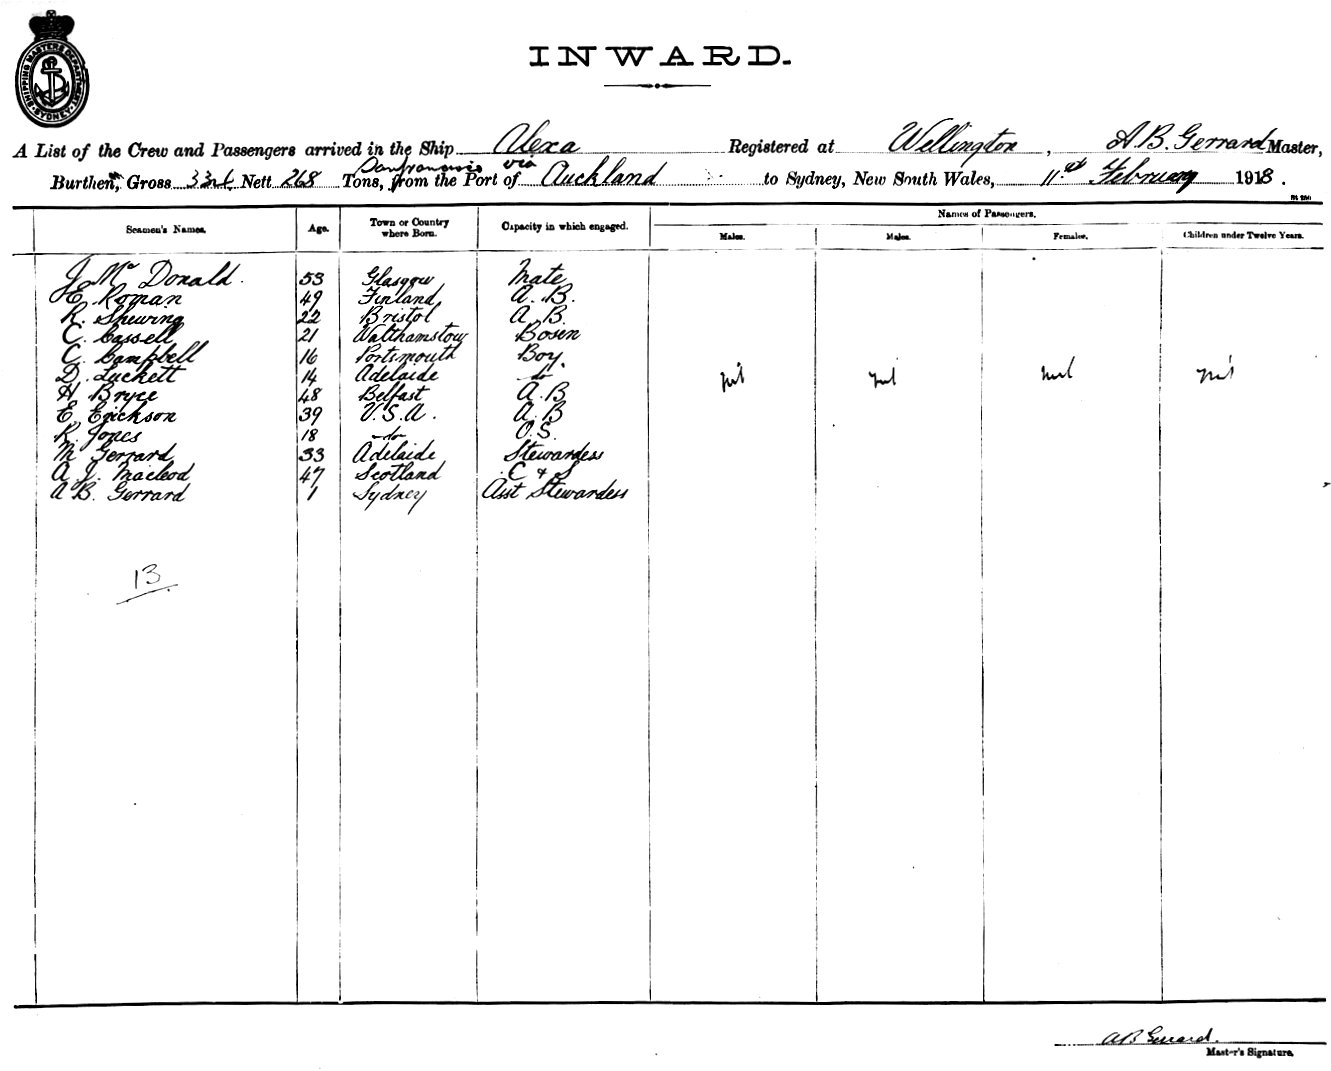 SHIPPING MASTERS DEPARTMENT
SYDNEY
INWARD.
A List of the Crew and Passengers arrived in the Ship Alexa Registered at Wellington, A B. Gerrard Master,
Sanfrancisco via
Burthen, Gross Nett 268 Tons, from the Port of Auckland to Sydney, New South Wales, 11th February 1918.
Names of Passengers.
Seamen's Names. Age. Town or Country where Born. Capacity in which engaged. Males. Males. Females. Children under Twelve Years.
J Mc Donald. 53 Glasgow Mate
E. Roman 49 Finland A. B.
R. Shewing 22 Bristol A B.
C. Cassell 21 Walthamstow Bosen
C. Campbell 16 Portsmouth Boy.
D. Luckett 14 Adelaide do nil nil nil nil
H Bryce 48 Belfast A. B
E. Erickson 39 U.S.A. A. B
R. Jones 18 do O.S.
M Gerrard 33 Adelaide Stewardess
A. J. Macleod 47 Scotland C & S
A B. Gerrard 1 Sydney Asst Stewardess
13
AB Gerrard.
Master's Signature.